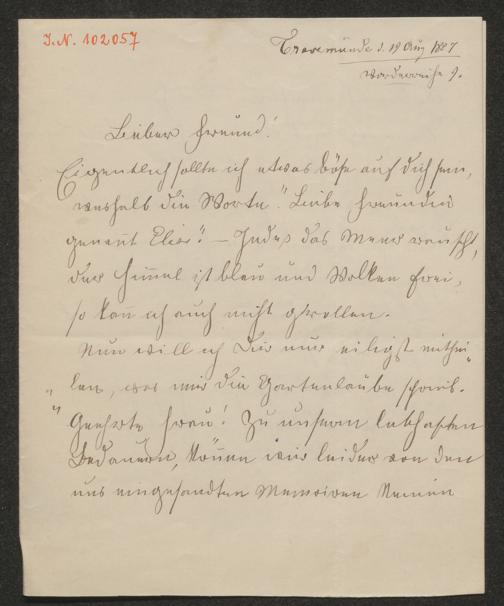 I.N. 102057
Travemünde d. 19 Aug 1887
Vorderreihe 9.
Lieber Freund!
Eigentlich sollte ich etwas böse auf dich sein,
weshalb die Worte "Liebe Freundin
genannt Elise"! — Indeß das Meer rauscht,
der Himmel ist blau und Wolken frei,
so kann ich auch nicht grollen.
Nun will ich Dir nur eiligst mitthei-
len, was mir die Gartenlaube schrieb.
"Geehrte Frau! Zu unserem lebhaften
Bedauern, können wir leider von den
uns eingesandten Memoiren keinen